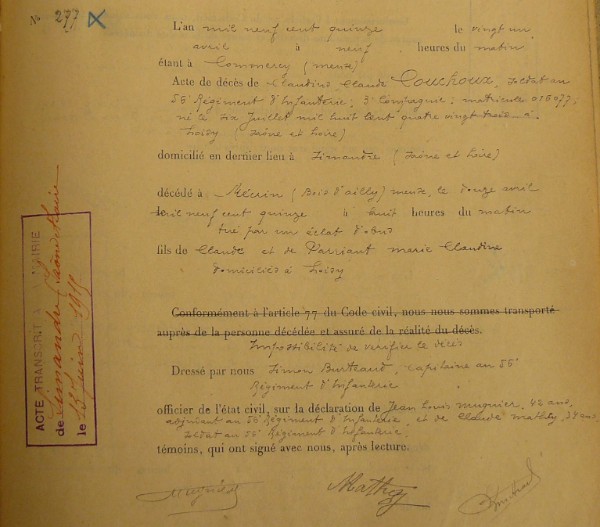 N° 277
L'an mil neuf cent quinze le vingt un
avril à neuf heures du matin
étant à Commercy (Meuse)
Acte de décès de Claudius, Claude Couchoux, soldat au
56e Régiment d'Infanterie, 3e Compagnie, matricule 016077;
né le six Juillet mil huit cent quatre vingt
Loisy (Saône et Loire)
domicilié en dernier lieu à Simandre (Saône et Loire)
décédé à Mécrin (Bois d'ailly) meuse, le douze
avril neuf cent quinze à huit heures du matin
tué par un éclat d'obus
fils de Claude et de Parriaut marie Claudine
domiciliés à Loisy
Conformément à l'article 77 du Code civil, nous nous sommes transporté
auprès de la personne décédée et assuré de la réalité du décès.
Impossibilité de verifier le décès
Dressé par nous Simon Burteaud, Capitaine au 56e
Régiment d'Infanterie
officier de l'état civil, sur la déclaration de Jean Louis mugnier, 42 ans,
adjudant au 56e Régiment d'Infanterie et de Claude Mathey, ans,
soldat au 56e Régiment d'Infanterie,
témoins, qui ont signé avec nous, après lecture.
Mugnier Mathey
ACTE TRANSCRIT A MAIRIE
de Simandre Saône & Loire
le 13 Juin